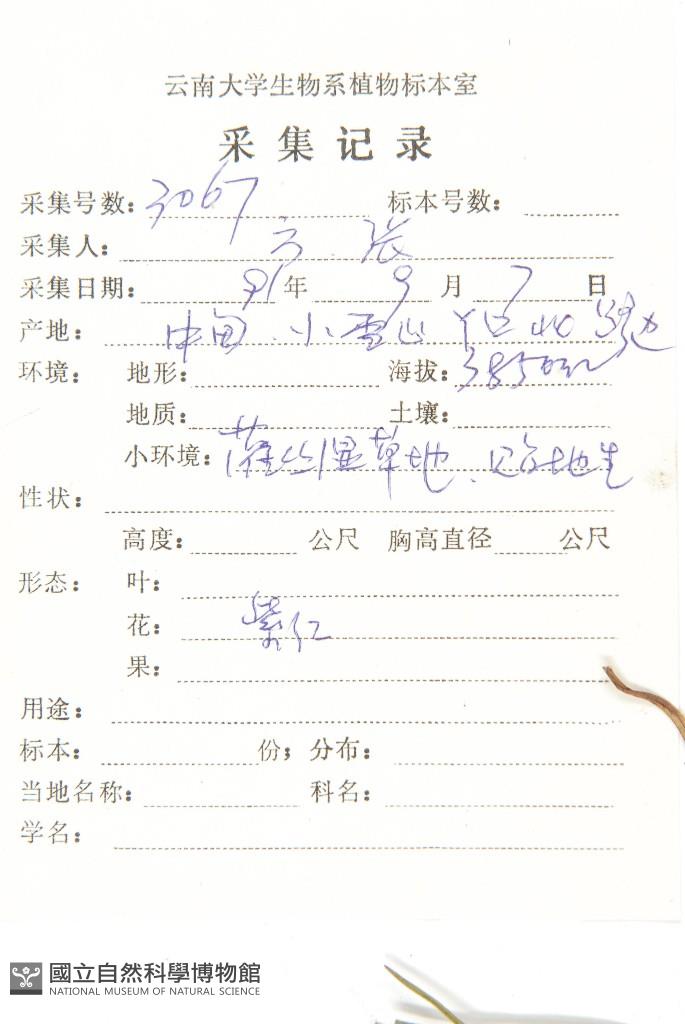 云南大学生物系植物标本室
采集记录
采集号数: 3067 标本号数:
采集人: 方 张
采集日期: 91年 9月 7日
产地: 中甸、小雪山丫口北 边
环境: 地形: 海拔: 3850m
地质: 土壤:
小环境: 草地、地生
性状:
高度: 公尺 胸高直径 公尺
形态: 叶:
花: 紫红
果:
用途:
标本: 份; 分布:
当地名称: 科名:
学名:
國立自然科學博物館
NATIONAL MUSEUM OF NATURAL SCIENCE